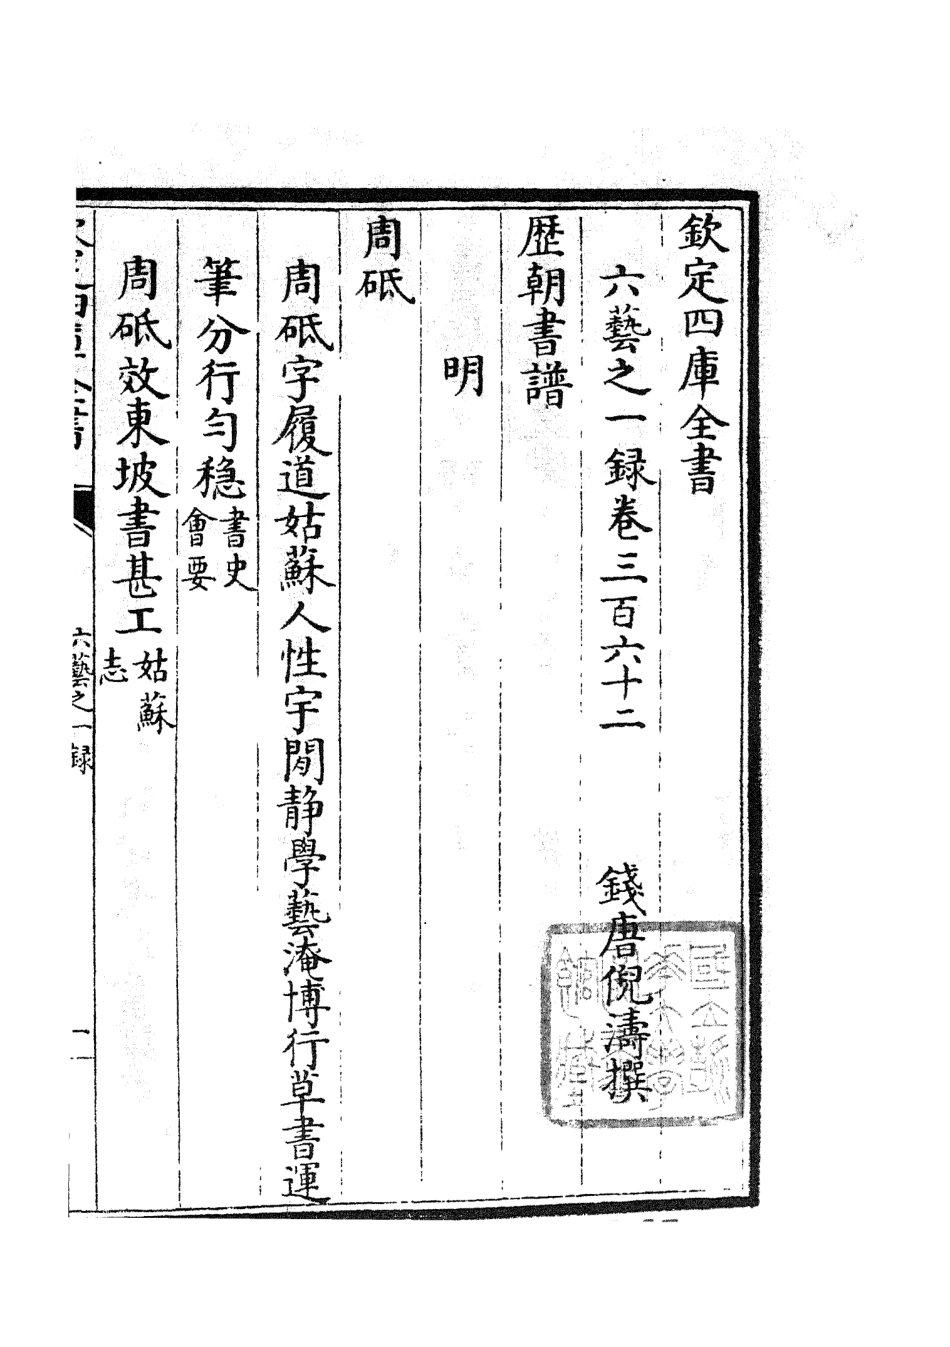 欽定四庫全書
六藝之一録卷三百六十二 錢唐倪濤撰
歴朝書譜
明
周砥
周砥字履道姑蘇人性宇閒静學藝淹博行草書運
筆分行匀穏書史會要
周砥效東坡書甚工姑蘇志
六藝之一録
一